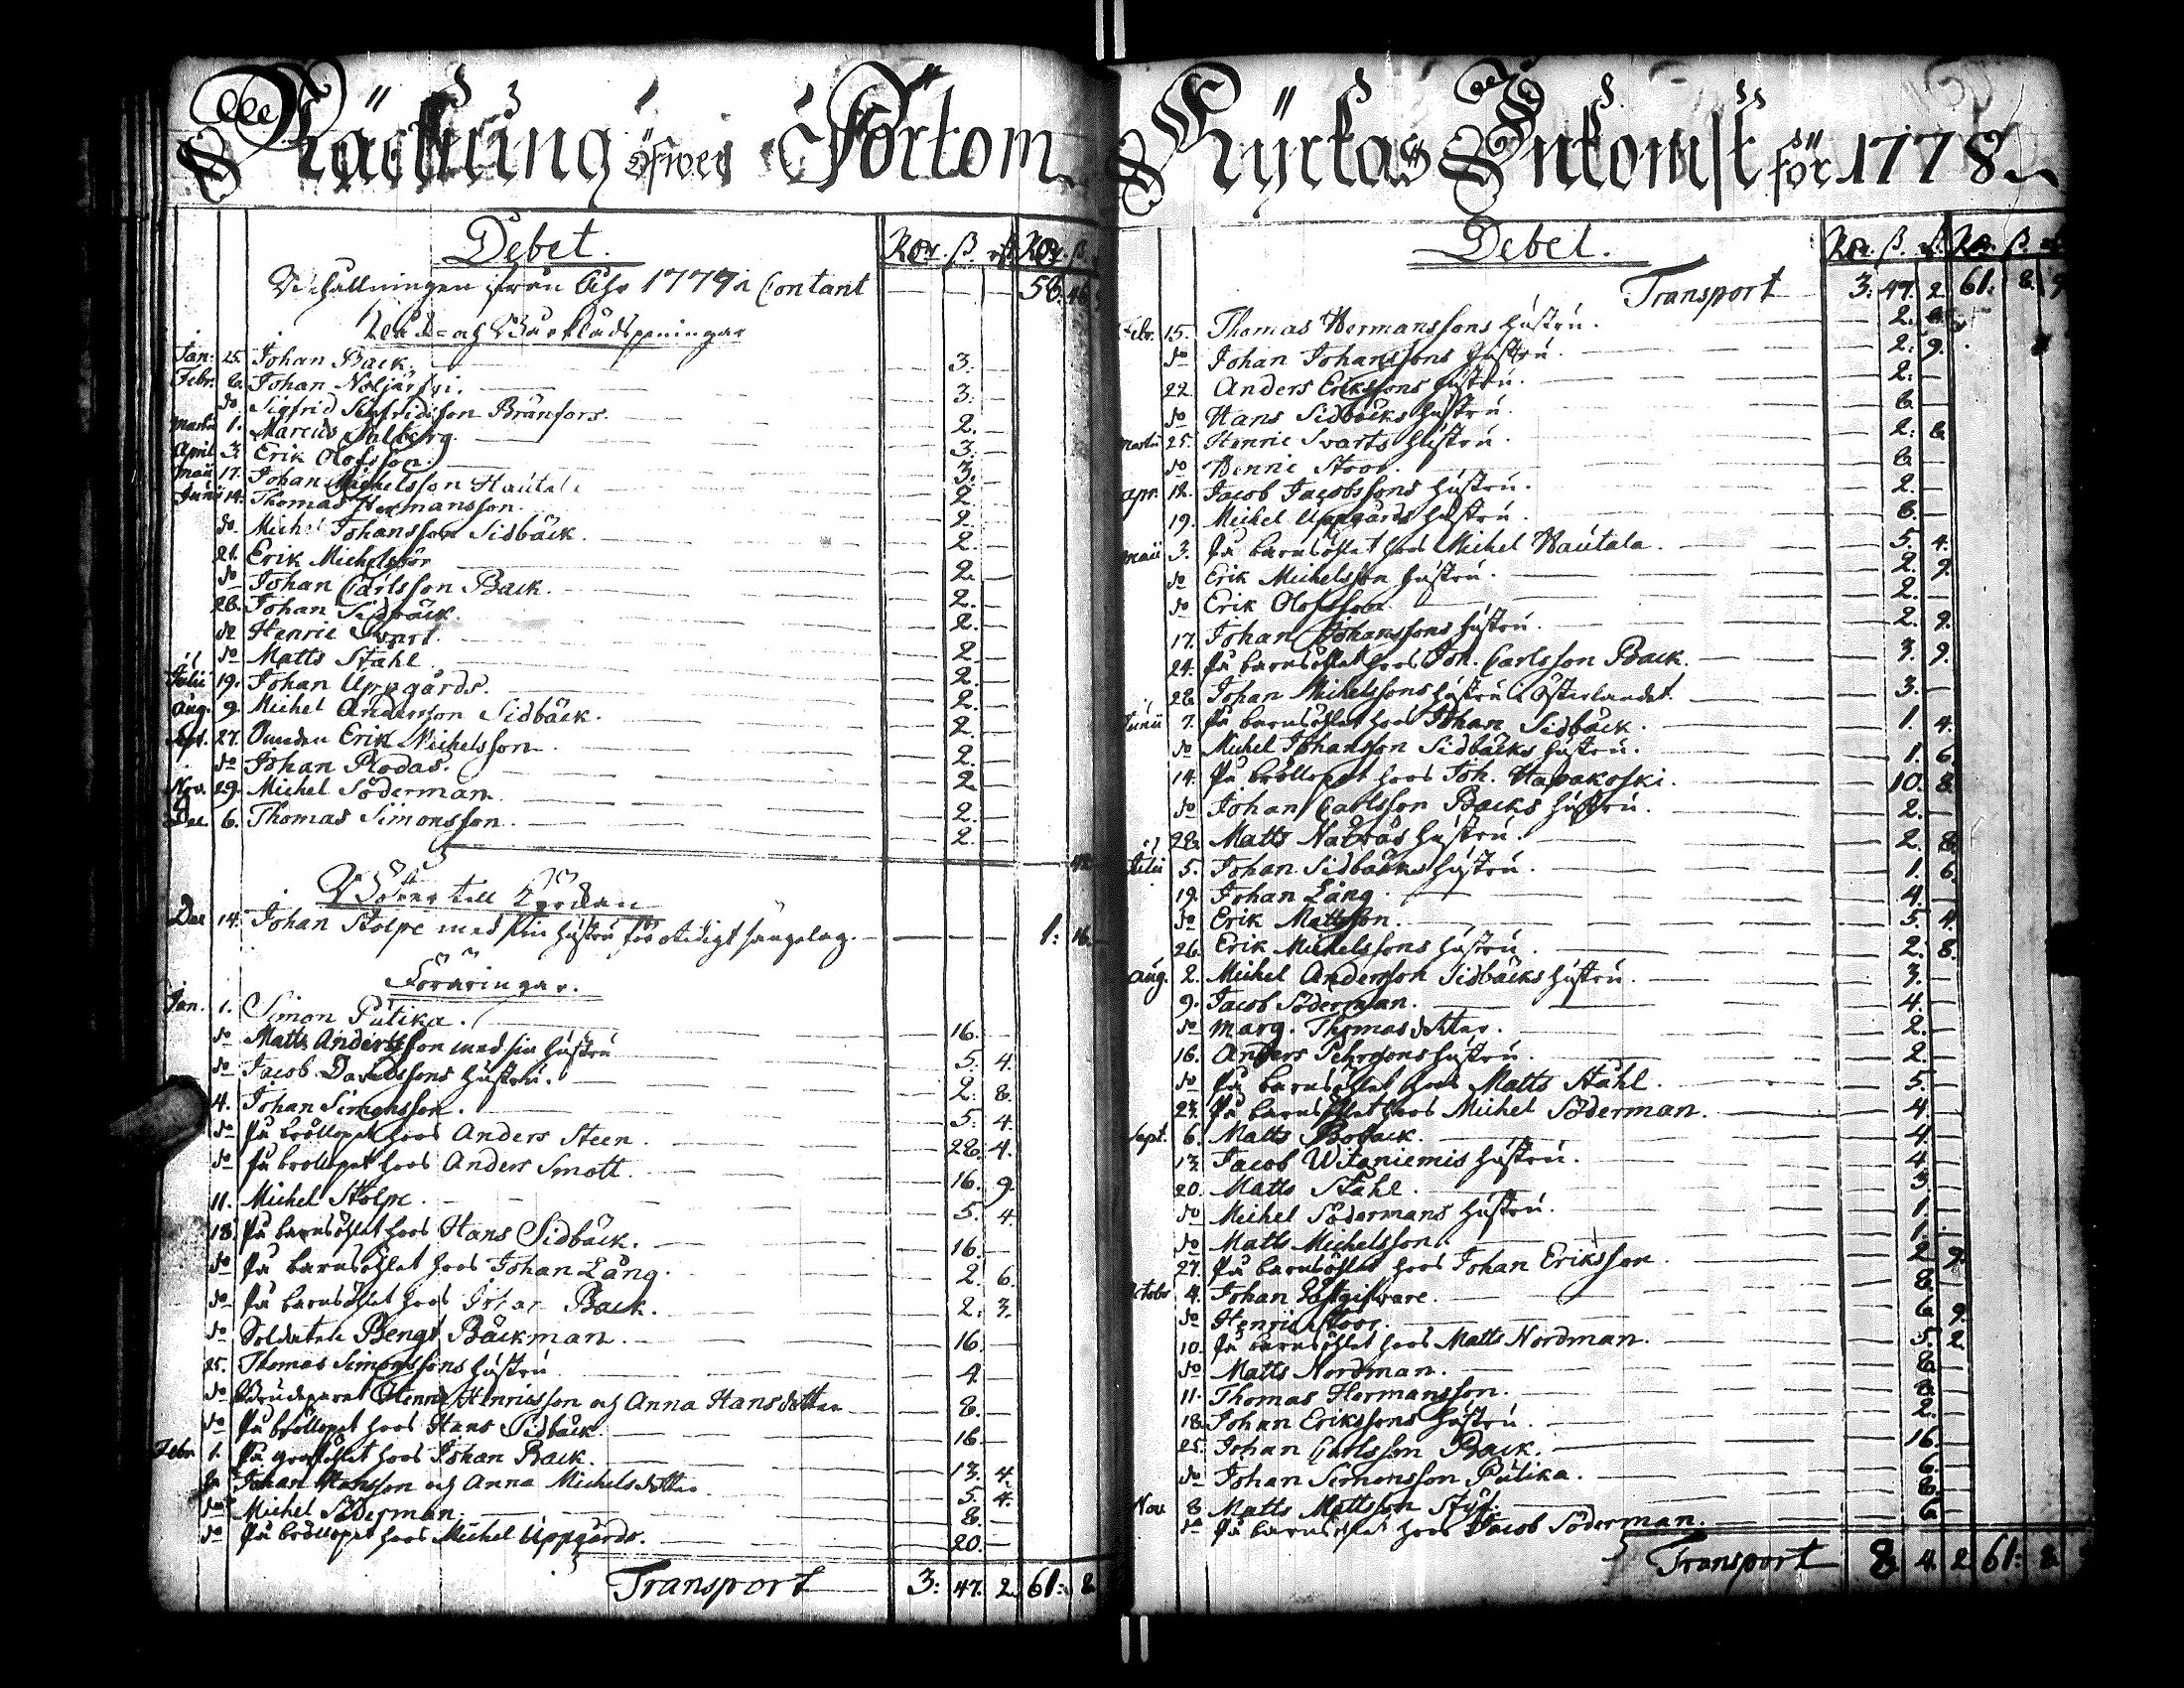 Räckning öfwer Pörtom
Debet. Rdr. ß. rst. Rdr. ß.
Behållningen ifrån Åhr 1777 i Contant — — — 56. 46
Läd- och Bårklädspenningar
Jan: 25. Johan Back. — 3. —
Febr: 6. Johan — 3. —
do Sigfrid Sigfridsson Brånfors. — 2. —
Martii 1. Marcus Salberg. — 3. —
April 3. Erik Olofsson. — 3. —
Maii 17. Johan Michelsson Hautala — 2. —
Junii 14. Thomas Hermansson. — 2. —
do Michel Johansson Sidbäck. — 2. —
21. Erik Michelsson — 2. —
do Johan Carlsson Back. — 2. —
28. Johan Sidbäck. — 2. —
do Henric Svart. — 2. —
do Matts Ståhl — 2. —
Julii 19. Johan Uppgårds. — 2. —
Aug. 9. Michel Andersson Sidbäck. — 2. —
Sept. 27. Erik Michelsson — 2. —
do Johan Plodas. — 2. —
Nov. 29. Michel Söderman — 2. —
Dec. 6. Thomas Simonsson. — 2. —
42.
Böter till Kyrckan
Dec 14. Johan Stolpe med sin hustru för otidigt sängelag. — — — 1: 16.
Föräringar.
Jan. 1. Simon Putika. — 16. —
do Matts Andersson med sin hustru — 5. 4.
do Jacob Davidssons hustru. — 2. 8.
4. Johan Simonsson. — 5. 4.
do På bröllopet hoos Anders Steen. — 28. 4.
do På bröllopet hoos Anders Smott. — 16. 9.
11. Michel Stolpe. — 5. 4.
18. På barnsöhlet hoos Hans Sidbäck. — 16. —
do På barnsöhlet hoos Johan Lång. — 2. 6.
do På barnsöhlet hoos Johan Back. — 2. 3.
do Soldaten Bengt Bäckman. — 16. —
25. Thomas Simonssons hustru — 4. —
do Brudeparet Henric Henricsson och Anna Hansdotter — 8. —
do På bröllopet hoos Hans Sidbäck. — 16. —
Febr. 1. På graföhlet hoos Johan Back. — 13. 4.
do Johan Hansson och Anna Michelsdotter — 5. 4.
do Michel Söderman. — 8. —
do På bröllopet hoos Michel Uppgårds. — 20. —
Transport 3: 47. 2. 61: 8
Kyrkas Inkomst för 1778.
Debet. Rdr. ß. rst. Rdr. ß.
Transport 3: 47. 2 61: 8. 9
Febr. 15. Thomas Hermanssons hustru. — 2. 8.
do Johan Johanssons hustru. — 2. 9.
22. Anders Erikssons hustru. — 2. —
do Hans Sidbäcks hustru. — 8. —
Martii 25. Henric Svarts hustru. — 2. 8.
do Henric Stoor. — 8. —
Apr. 12. Jacob Jacobssons hustru. — 2. —
19. Michel Uppgårds hustru. — 8. —
Maii 3. På barnsöhlet hoos Michel Hautala. — 5. 4.
do Erik Michelsson hustru. — 2. 9.
do Erik Olofsson. — 2. —
17. Johan Johanssons hustru. — 2. 9.
24. På barnsöhlet hoos Joh. Carlsson Back. — 3. 9.
28. Johan Michelssons hustru i Österlandet. — 3. —
Junii 7. På barnsöhlet hoos Johan Sidbäck. — 1. 4.
do Michel Johansson Sidbäcks hustru. — 1. 6.
14. På bröllopet hoos Joh. Hapakoski. — 10. 8.
do Johan Carlsson Backs hustru. — 2. —
28. Matts hustru. — 2. 8.
Julii 5. Johan Sidbäcks hustru. — 1. 6.
19. Johan Lång. — 4. —
do Erik Mattsson. — 5. 4.
26. Erik Michelssons hustru. — 2. 8.
Aug. 2. Michel Andersson Sidbäcks hustru. — 3. —
9. Jacob Söderman. — 4. —
do Marg. Thomasdotter. — 2. —
16. Anders Pehrsons hustru. — 2. —
do På barnsöhlet hoos Matts Ståhl. — 5. —
23. På barnsöhlet hoos Michel Söderman. — 4. —
Sept. 6. Matts Boback. — 4. —
13. Jacob Witaniemis hustru. — 4. —
20. Matts Ståhl. — 3. —
do Michel Södermans hustru. — 1. —
do Matts Michelsson. — 1. —
27. På barnsöhlet hoos Johan Eriksson — 2. 9.
Octobr 4. Johan Gästgifware. — 8. —
do Henric Stoor. — 6. 9.
10. På barnsöhlet hoos Matts Nordman. — 5. 2.
do Matts Nordman. — 8. —
11. Thomas Hermansson. — 8. —
18. Johan Erikssons hustru. — 2. —
25. Johan Carlsson Back. — 16. —
do Johan Simonsson Putika. — 6. —
Nov. 8. Matts Mattsson — 8. —
do På barnsöhlet hoos Jacob Söderman. — 6. —
Transport 8: 4. 2. 61: 8